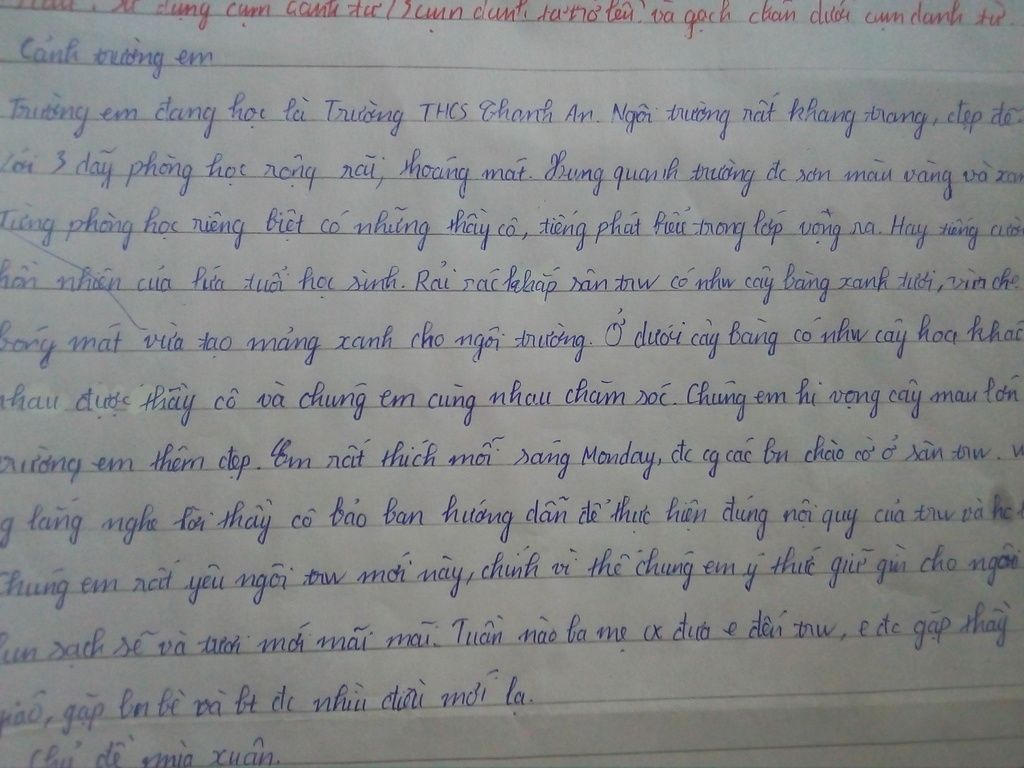 sử dụng cụm danh từ /3 cụm danh từ trở lên và gạch chân dưới cụm danh từ.
Cảnh trường em
Trường em đang học là Trường THCS Thanh An. Ngôi trường rất khang trang, đẹp đẽ
với 3 dãy phòng học rộng rãi, thoáng mát. Xung quanh trường đc sơn màu vàng và xan
Từng phòng học riêng biệt có những thầy cô, tiếng phát biểu trong lớp vọng ra. Hay tiếng cười
hồn nhiên của lứa tuổi học sinh. Rải rác khắp sân trw có nhw cây bàng xanh tươi, vừa che
bóng mát vừa tạo mảng xanh cho ngôi trường. Ở dưới cây bàng có nhw cây hoa khác
nhau được thầy cô và chúng em cùng nhau chăm sóc. Chúng em hi vọng cây mau lớn
trường em thêm đẹp. Em rất thích mỗi sáng Monday, đc cg các bn chào cờ ở sân trw.
g lắng nghe lời thầy cô bảo ban hướng dẫn để thực hiện đúng nội quy của trw và
Chúng em rất yêu ngôi trw mới này, chính vì thế chúng em ý thức giữ gìn cho ngôi
lun sạch sẽ và tươi mới mãi mãi. Tuần nào ba mẹ cx đưa e đến trw, e đc gặp thầy
giáo, gặp bn bè và bt đc nhìu đìu mới lạ.
Chủ đề mùa xuân.